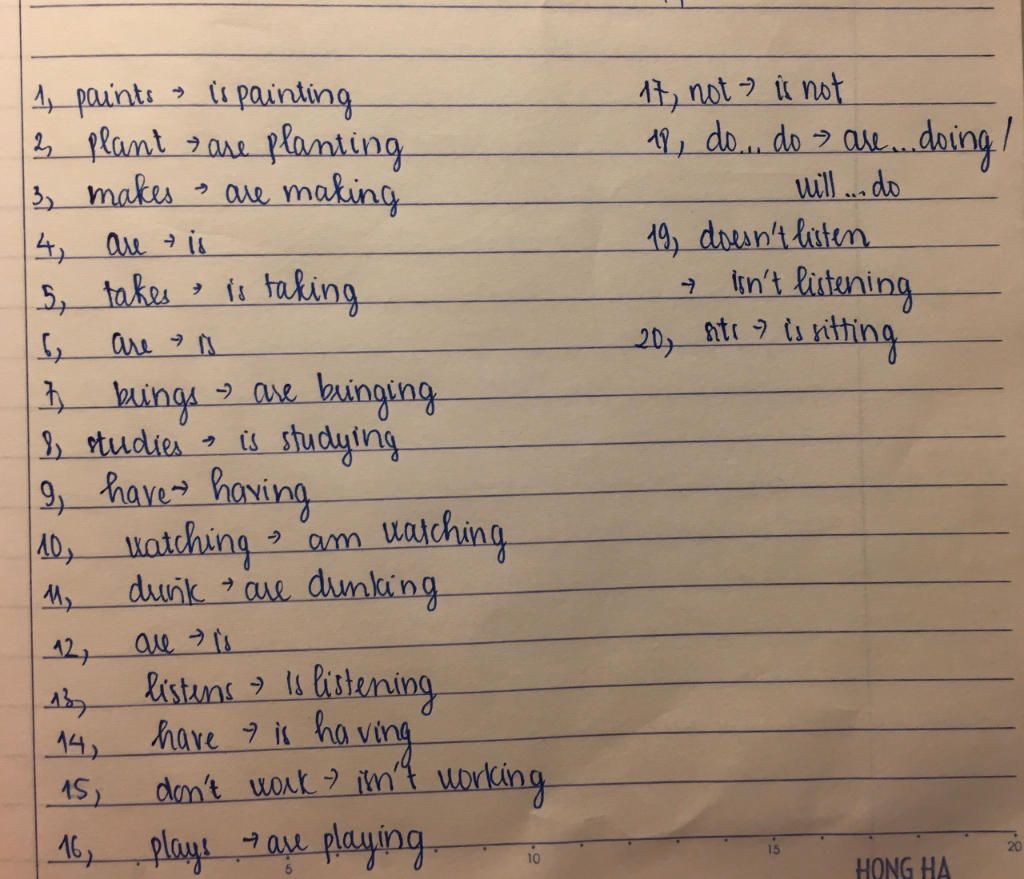 1, paints → is painting
2, plant → are planting
3, makes → are making
4, are → is
5, takes → is taking
6, are → is
7, brings → are bringing
8, studies → is studying
9, have → having
10, watching → am watching
11, drink → are drinking
12, are → is
13, listens → is listening
14, have → is having
15, don't work → isn't working
16, plays → are playing
17, not → is not
18, do... do → are...doing /
will ... do
19, doesn't listen
→ isn't listening
20, sits → is sitting
5 10 15 20
HONG HA